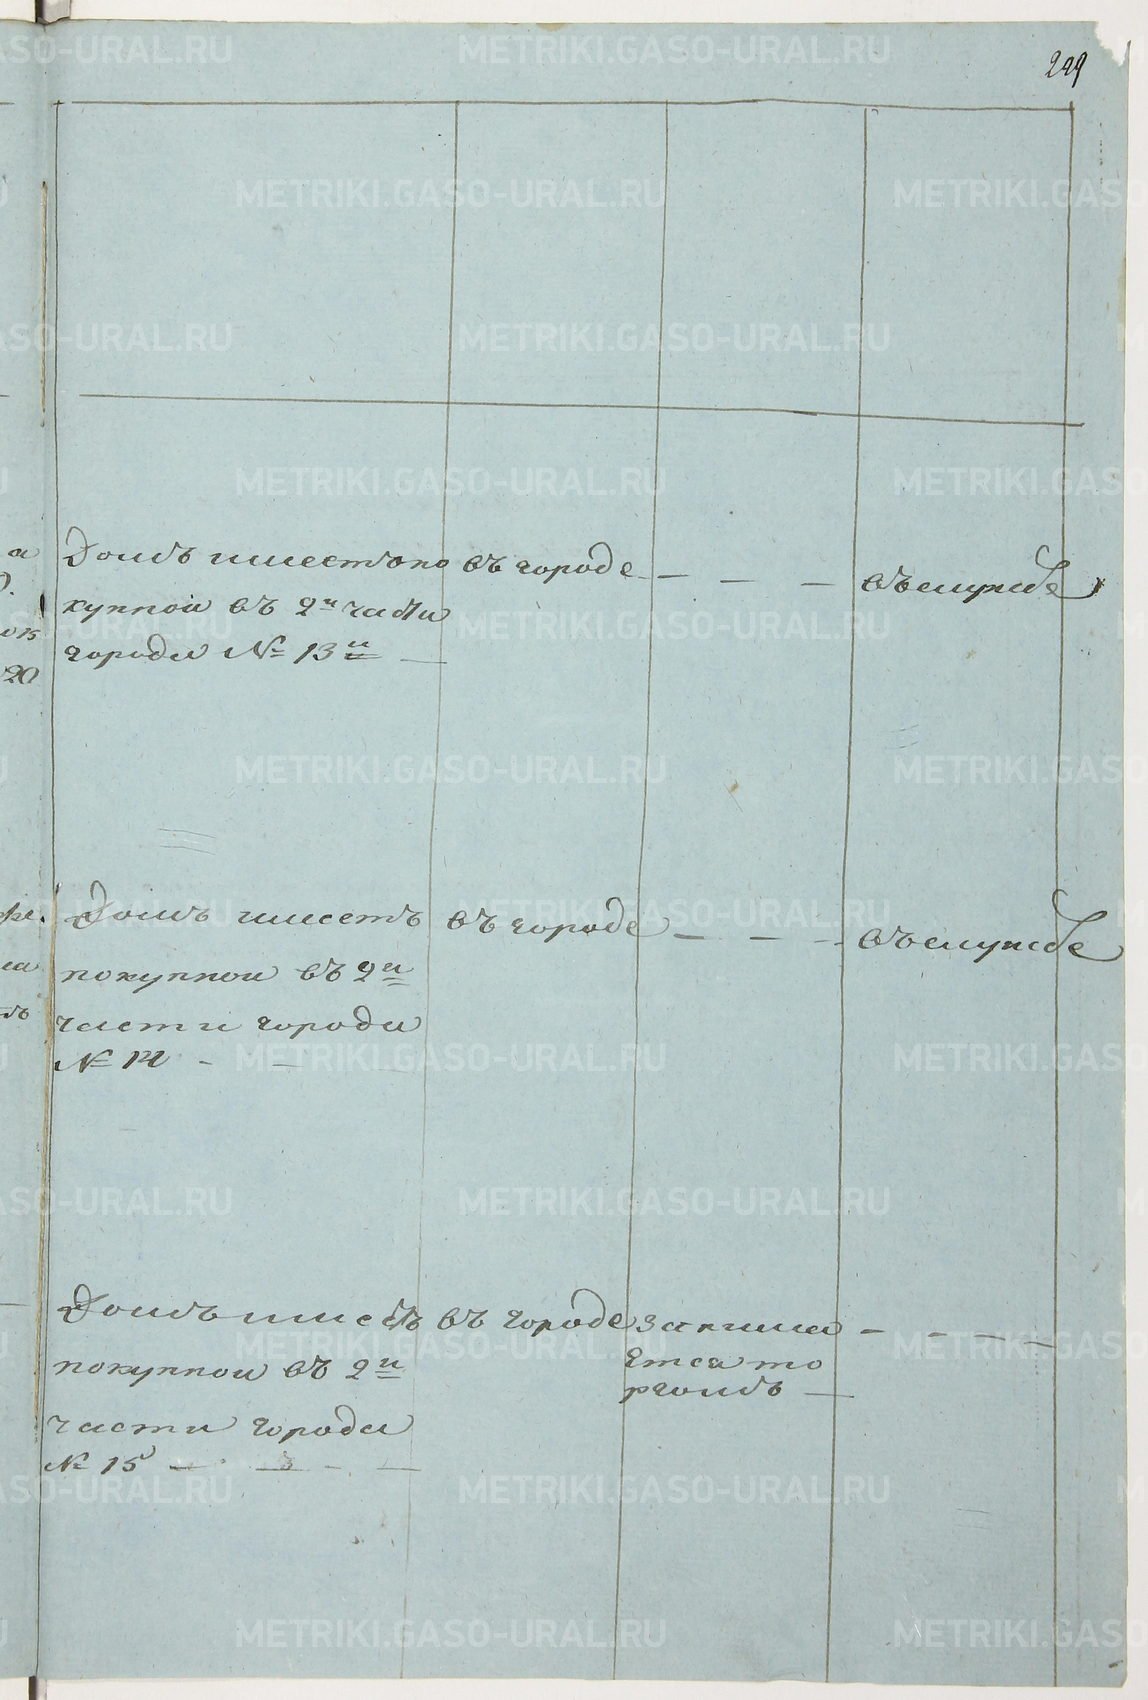 299
Домъ имеетъ по
купной въ 2й части
города № 13й
въ городе
въ службе
Домъ имеетъ
покупной въ 2й
части города
№ 14
въ городе
въ службе
Домъ имеетъ
покупной въ 2й
части города
№ 15
въ городе
занима
етса то
ргомъ
METRIKI.GASO-URAL.RU